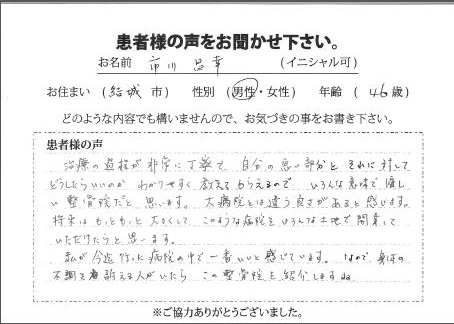 患者様の声をお聞かせ下さい。
お名前 市川 昌幸 (イニシャル可)
お住まい (結城 市) 性別 (男性・女性) 年齢 (46歳)
どのような内容でも構いませんので、お気づきの事をお書き下さい。
患者様の声
治療の過程が非常に丁寧で、自分の悪い部分と それに対して
どうしたらいいのか わかりやすく 教えてもらえるので いろんな意味で優し
い 整骨院だと 思います。 大病院とは違う良さがあると感じます。
将来は もっともっと 大きくして このような病院を いろんな土地で 開業して
いただけたらと 思います。
私が 今迄 行った 病院の中で 一番 いいと 感じています。 なので、身体の
不調を 訴える人がいたら この整骨院を 紹介しますね
※ご協力ありがとうございました。